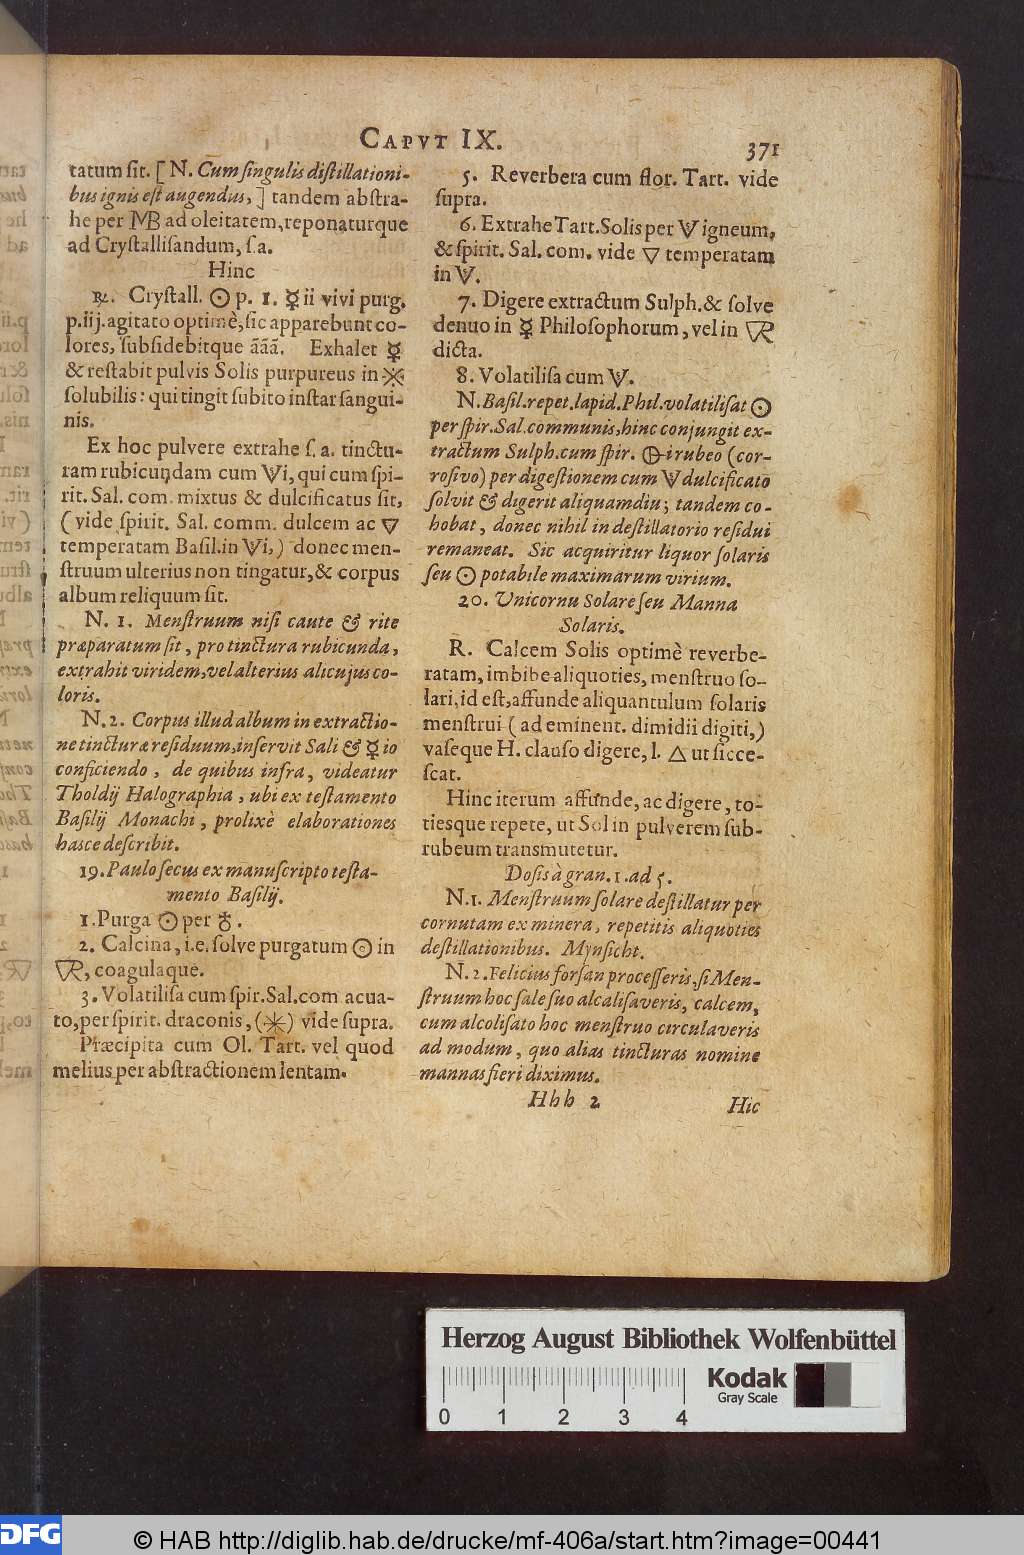 CAPVT IX.
371
tatum sit. [ N. Cum singulis distillationi-
bus ignis est augendus, ] tandem abstra-
he per MB ad oleitatem, reponaturque
ad Crystallisandum, s.a.
Hinc
℞. Crystall. ☉ p. 1. ☿ii vivi purg.
p.iij. agitato optimè, sic apparebunt co-
lores, subsidebitque ããã. Exhalet ☿
& restabit pulvis Solis purpureus in ✳
solubilis: qui tingit subito instar sangui-
nis.
Ex hoc pulvere extrahe s. a. tinctu-
ram rubicundam cum Vi, qui cum spi-
rit. Sal. com. mixtus & dulcificatus sit,
( vide spirit. Sal. comm. dulcem ac 🜄
temperatam Basil. in Vi, ) donec men-
struum ulterius non tingatur, & corpus
album reliquum sit.
N. 1. Menstruum nisi caute & rite
præparatum sit, pro tinctura rubicunda,
extrahit viridem, vel alterius alicujus co-
loris.
N. 2. Corpus illud album in extractio-
ne tincturæ residuum, inservit Sali & ☿io
conficiendo, de quibus infra, videatur
Tholdij Halographia, ubi ex testamento
Basilij Monachi, prolixè elaborationes
hasce describit.
19. Paulo secus ex manuscripto testa-
mento Basilij.
1. Purga ☉ per ♁.
2. Calcina, i.e. solve purgatum ☉ in
🜆, coagulaque.
3. Volatilisa cum spir. Sal. com acua-
to, per spirit. draconis, (✳) vide supra.
Præcipita cum Ol. Tart. vel quod
melius per abstractionem lentam.
5. Reverbera cum flor. Tart. vide
supra.
6. Extrahe Tart. Solis per V igneum,
& spirit. Sal. com. vide 🜄 temperatam
in V.
7. Digere extractum Sulph. & solve
denuo in ☿ Philosophorum, vel in 🜆
dicta.
8. Volatilisa cum V.
N. Basil. repet. lapid. Phil. volatilisat ☉
per spir. Sal. communis, hinc conjungit ex-
tractum Sulph. cum spir. 🜖i rubeo (cor-
rosivo) per digestionem cum V dulcificato
solvit & digerit aliquamdiu; tandem co-
hobat, donec nihil in destillatorio residui
remaneat. Sic acquiritur liquor solaris
seu ☉ potabile maximarum virium.
20. Unicornu Solare seu Manna
Solaris.
R. Calcem Solis optimè reverbe-
ratam, imbibe aliquoties, menstruo so-
lari, id est, affunde aliquantulum solaris
menstrui ( ad eminent. dimidii digiti, )
vaseque H. clauso digere, l. 🜂 ut sicce-
scat.
Hinc iterum affunde, ac digere, to-
tiesque repete, ut Sol in pulverem sub-
rubeum transmutetur.
Dosis à gran. 1. ad 5.
N. 1. Menstruum solare destillatur per
cornutam ex minera, repetitis aliquoties
destillationibus. Mynsicht.
N. 2. Felicius forsan processeris, si Men-
struum hoc sale suo alcalisaveris, calcem,
cum alcolisato hoc menstruo circulaveris
ad modum, quo alias tincturas nomine
mannas fieri diximus.
Hhh 2
Hic
Herzog August Bibliothek Wolfenbüttel
0 1 2 3 4
Kodak
Gray Scale
DFG
© HAB http://diglib.hab.de/drucke/mf-406a/start.htm?image=00441